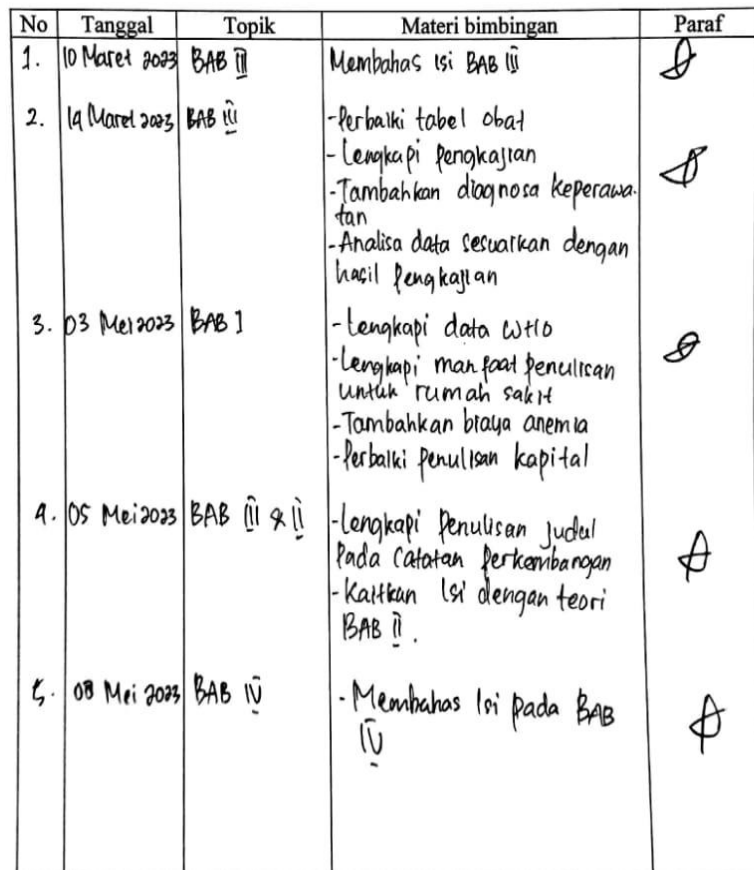 No Tanggal Topik Materi bimbingan Paraf
1. 10 Maret 2023 BAB III Membahas isi BAB III
2. 14 Maret 2023 BAB III -Perbaiki tabel obat
- Lengkapi Pengkajian
-Tambahkan diagnosa keperawa-
tan
-Analisa data sesuaikan dengan
hasil Pengkajian
3. 03 Mei 2023 BAB I - Lengkapi data WHO
-Lengkapi manfaat penulisan
untuk rumah sakit
-Tambahkan biaya anemia
-Perbaiki penulisan kapital
4. 05 Mei 2023 BAB III & II -Lengkapi Penulisan judul
Pada Catatan Perkembangan
-Kaitkan isi dengan teori
BAB II.
5. 08 Mei 2023 BAB IV - Membahas isi pada BAB
IV